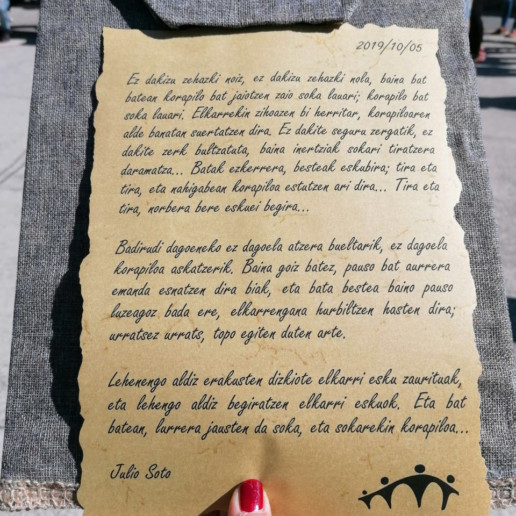 2019/10/05
Ez dakizu zehazki noiz, ez dakizu zehazki nola, baina bat
batean korapilo bat jaiotzen zaio soka lauari; korapilo bat
soka lauari. Elkarrekin zihoazen bi herritar, korapiloaren
alde banatan suertatzen dira. Ez dakite seguru zergatik, ez
dakite zerk bultzatuta, baina inertziak sokari tiratzera
daramatza... Batak ezkerrera, besteak eskubira; tira eta
tira, eta nahigabean korapiloa estutzen ari dira... Tira eta
tira, norbera bere eskuei begira...
Badirudi dagoeneko ez dagoela atzera bueltarik, ez dagoela
korapiloa askatzerik. Baina goiz batez, pauso bat aurrera
emanda esnatzen dira biak, eta bata bestea baino pauso
luzeagoz bada ere, elkarrengana hurbiltzen hasten dira;
urratsez urrats, topo egiten duten arte.
Lehenengo aldiz erakusten dizkiote elkarri esku zaurituak,
eta lehengo aldiz begiratzen elkarri eskuok. Eta bat
batean, lurrera jausten da soka, eta sokarekin korapiloa...
Julio Soto